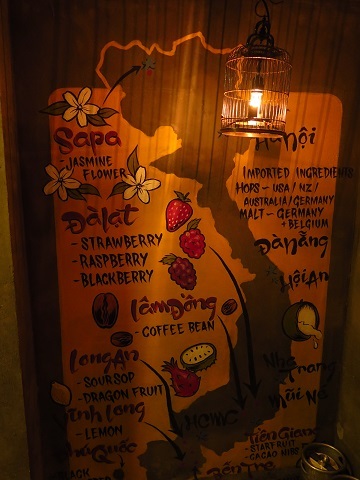 Sapa
- JASMINE
FLOWER
Đàlạt
- STRAWBERRY
- RASPBERRY
- BLACKBERRY
Lâm Đồng
- COFFEE BEAN
Long An
- SOURSOP
- DRAGON FRUIT
Long
- LEMON
Quốc
BLACK
Hà Nội
IMPORTED INGREDIENTS
HOPS - USA / NZ /
AUSTRALIA / GERMANY
MALT - GERMANY
+ BELGIUM
Đà Nẵng
Hội An
Nha
Trang
Mũi Né
HCMC
Tiền Giang
- START FRUIT
- CACAO NIBS
Bến Tre